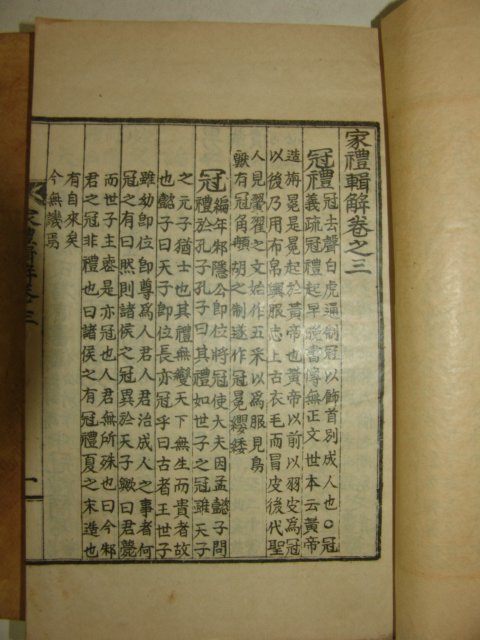 家禮輯解卷之三
冠禮
冠去聲白虎通制冠以飾首別成人也○冠
義疏冠禮起早晚書傳無正文世本云黃帝
造旃冕是冕起於黃帝也黃帝以前以羽皮爲冠
以後乃用布帛輿服志上古衣毛而冒皮後代聖
人見翬翟之文始作五采以爲服見鳥
獸有冠角䫇胡之制遂作冠冕纓緌
冠
編年邾隱公卽位將冠使大夫因孟懿子問
禮於孔子孔子曰其禮如世子之冠雖天子
之元子猶士也其禮無變天下無生而貴者故
也懿子曰天子卽位長亦冠乎曰古者王世子
雖幼卽位卽尊爲人君人君治成人之事者何
冠之有曰然則諸侯之冠異於天子歟曰君薨
而世子主喪是亦冠也人君無所殊也曰今邾
君之冠非禮也曰諸侯之有冠禮夏之末造也
有自來矣
今無譏焉
家禮輯解卷三
一